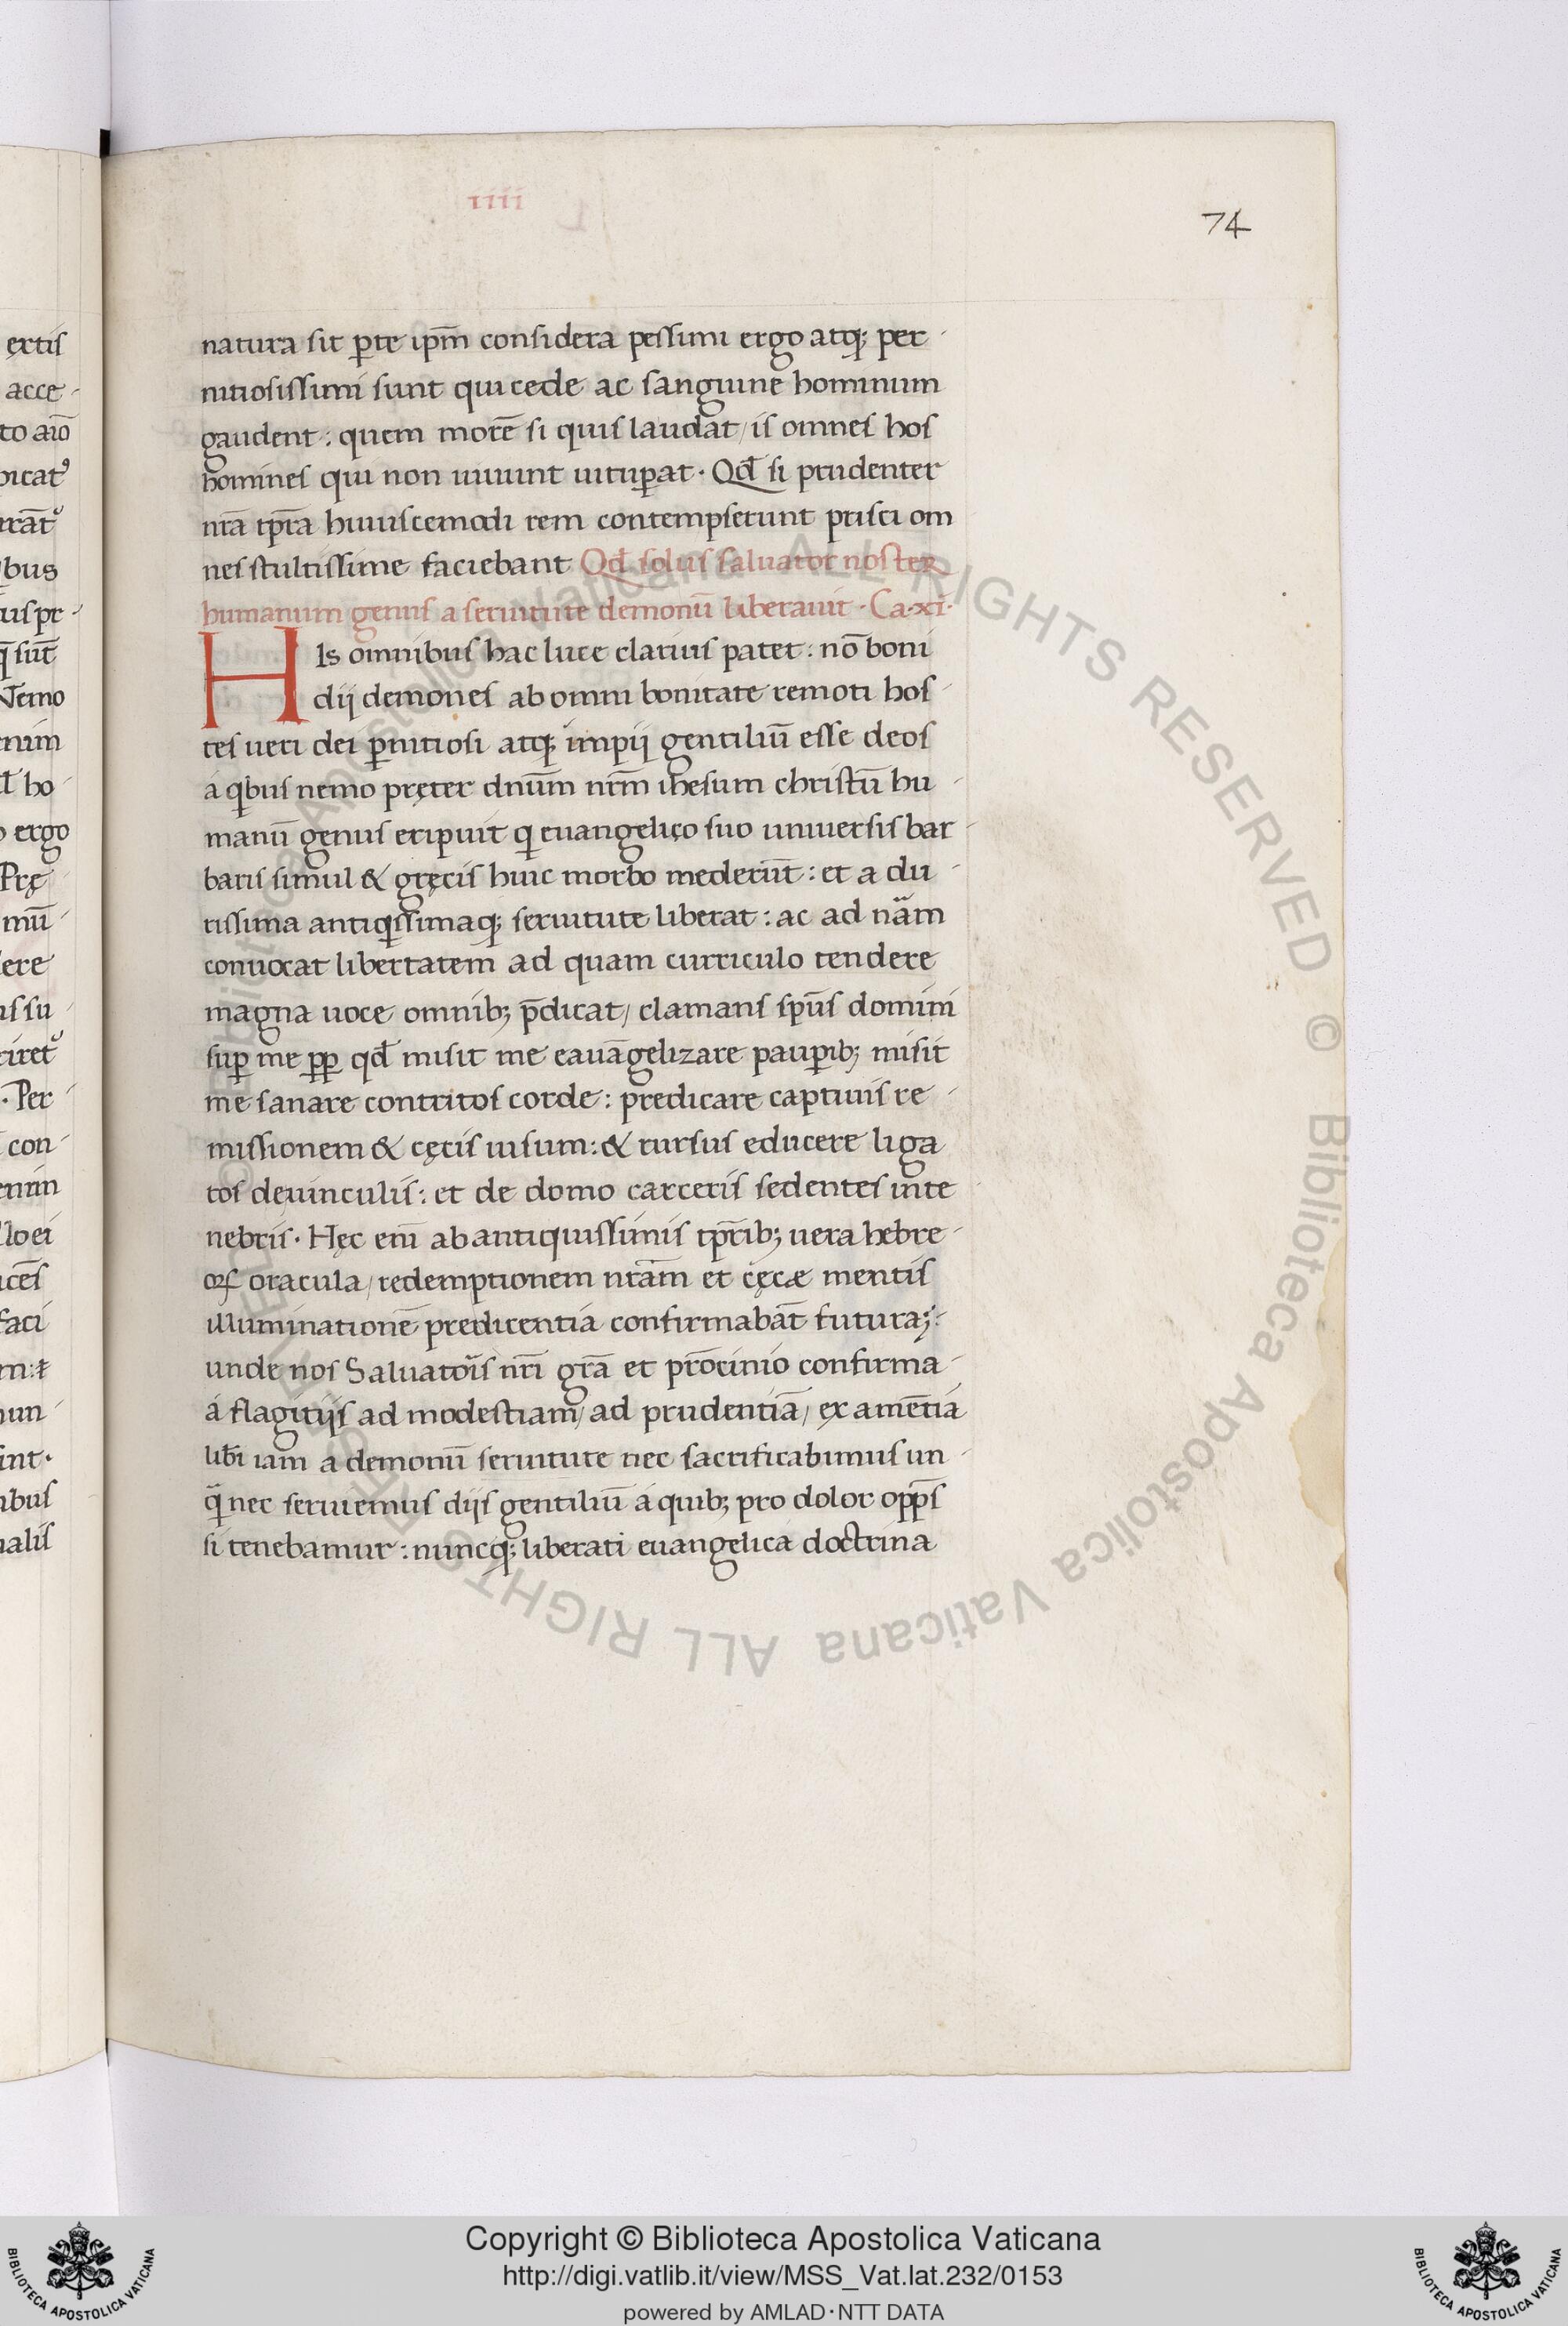 ıııı
74
natura sit ꝑ te ip̄m considera pessimi ergo atq; per
nitiosissimi sunt qui cede ac sanguine hominum
gaudent: quem morē si quis laudat/ is omnes hos
homines qui non uiuunt uituꝑat. Qđ si prudenter
nrā tꝑa huiuscemodi rem contempserunt prisci om
nes stultissime faciebant Qđ solus saluator noster
humanum genus a seruitute demonū liberauit. Ca.xi.
HIs omnibus hac luce clarius patet: nō boni
dij demones ab omni bonitate remoti hos
tes ueri dei ꝑnitiosi atq; impij gentiliū esse deos
á qibus nemo pręter dnūm nrm̄ ihesum christū hu
manū genus eripuit q euangelico suo uniuersis bar
baris simul & gręcis huic morbo mederūt: et a du
rissima antiqissimaq; seruitute liberat: ac ad nāam
conuocat libertatem ad quam curriculo tendere
magna uoce omnib; p̄dicat/ clamans sp̄us domini
suꝑ me ꝓp qđ misit me eauāgelizare pauꝑib; misit
me sanare contritos corde: predicare captiuis re
missionem & cęcis uisum: & rursus educere liga
tos deuinculis: et de domo carceris sedentes inte
nebris. Hęc em̄ ab antiquissimis tꝑib; uera hebre
oꝝ oracula/ redemptionem nrām et cęcæ mentis
illuminationē predicentia confirmabāt futura;:
unde nos Saluatoris nrī grā et prōcinio confirma
á flagitijs ad modestiam/ ad prudentiā/ ex amētia
libi iam a demonū seruitute nec sacrificabimus un
q̄ nec seruiemus dijs gentiliū á quib; pro dolor opp̄s
si tenebamur: nuncq; liberati euangelica doctrina
Copyright © Biblioteca Apostolica Vaticana
http://digi.vatlib.it/view/MSS_Vat.lat.232/0153
powered by AMLAD·NTT DATA